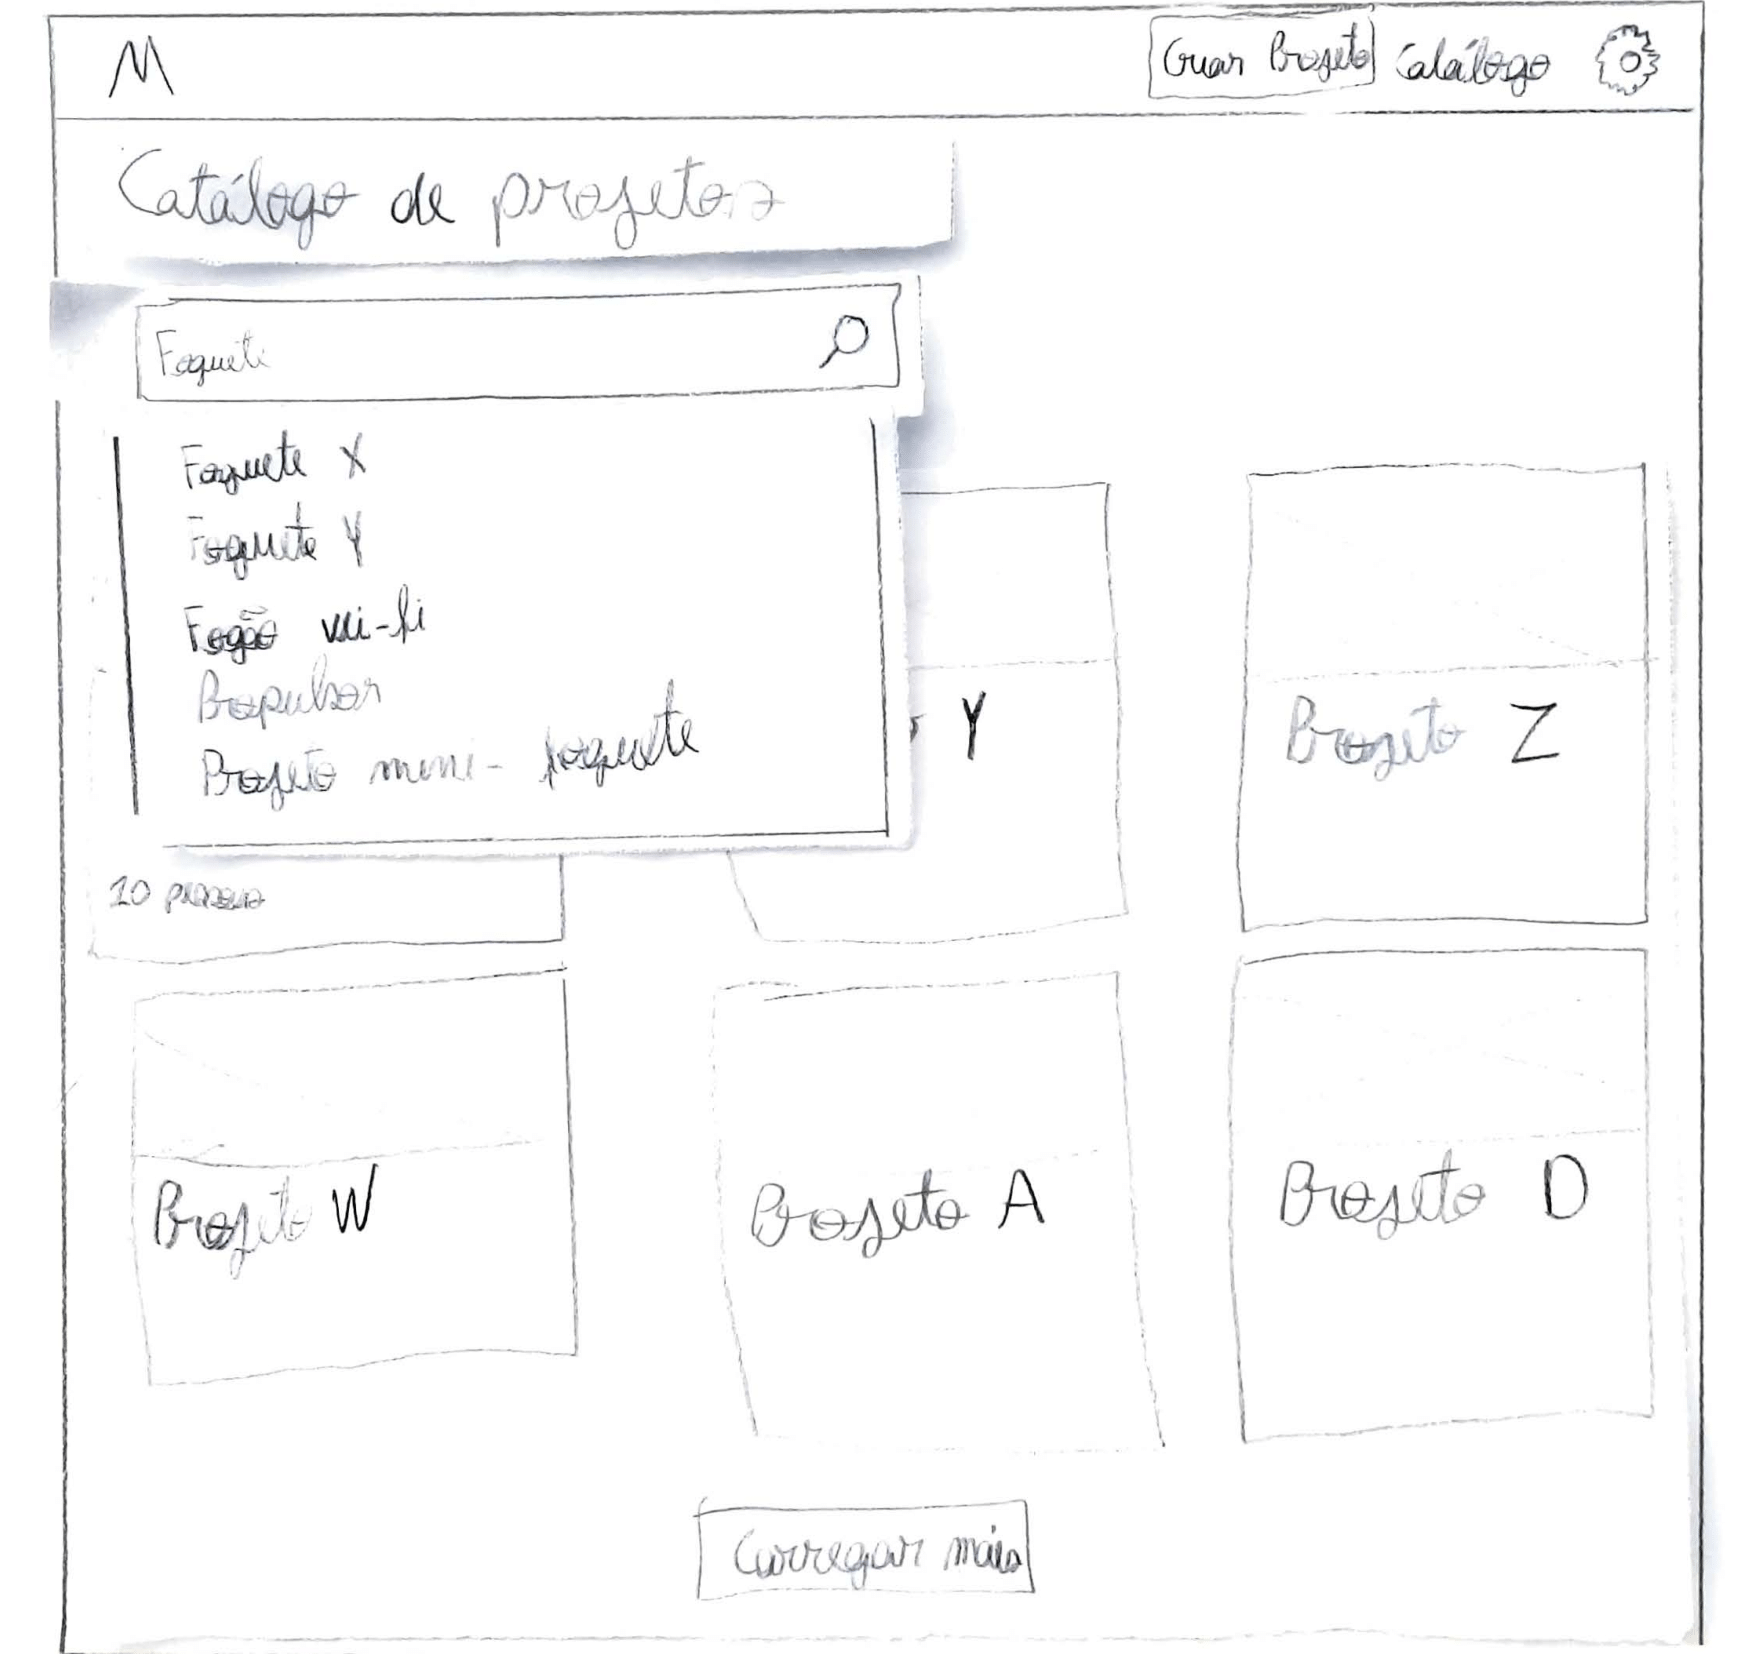 M
Criar Projeto Catálogo
Catálogo de projetos
Foguete
Foguete X
Foguete Y
Fogão wi-fi
Propulsor
Projeto mini-foguete
Y
Projeto Z
10 pessoas
Projeto W
Projeto A
Projeto D
Carregar mais